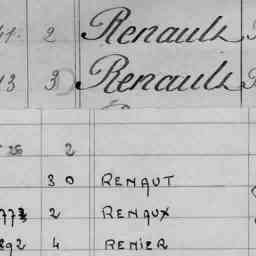 41. 2 Renault
13 3 Renault
26 2
30 RENAUT
773 2 RENAUX
292 4 RENIER